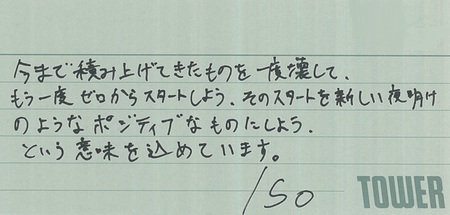 今まで積み上げてきたものを一度壊して、
もう一度ゼロからスタートしよう、そのスタートを新しい夜明け
のようなポジティブなものにしよう、
という意味を込めています。
/SO
TOWER